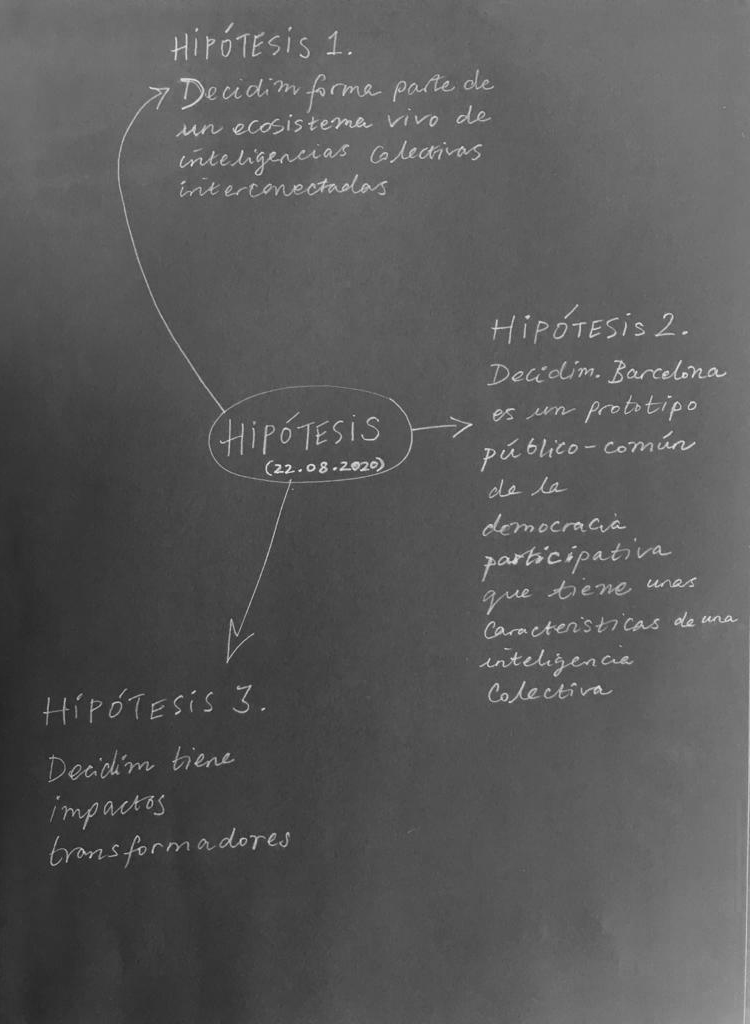 HIPÓTESIS 1.
Decidim forma parte de
un ecosistema vivo de
inteligencias colectivas
interconectadas
HIPÓTESIS 2.
Decidim. Barcelona
es un prototipo
público-común
de la
democracia
participativa
que tiene unas
características de una
inteligencia
colectiva
HIPÓTESIS
(22.08.2020)
HIPÓTESIS 3.
Decidim tiene
impactos
transformadores